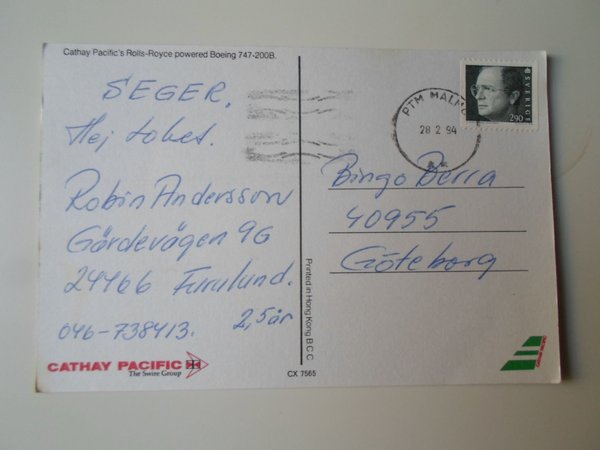 Cathay Pacific's Rolls-Royce powered Boeing 747-200B.
SEGER.
Hej
Robin Andersson
Gärdevägen 9G
24466 Furulund.
046-738413. 2,5år
CATHAY PACIFIC
The Swire Group
Printed in Hong Kong B.C.C
CX 7565
PTM MALMÖ
28 2 94
SVERIGE
2.90
Bingo Berra
40955
Göteborg
CATHAY PACIFIC